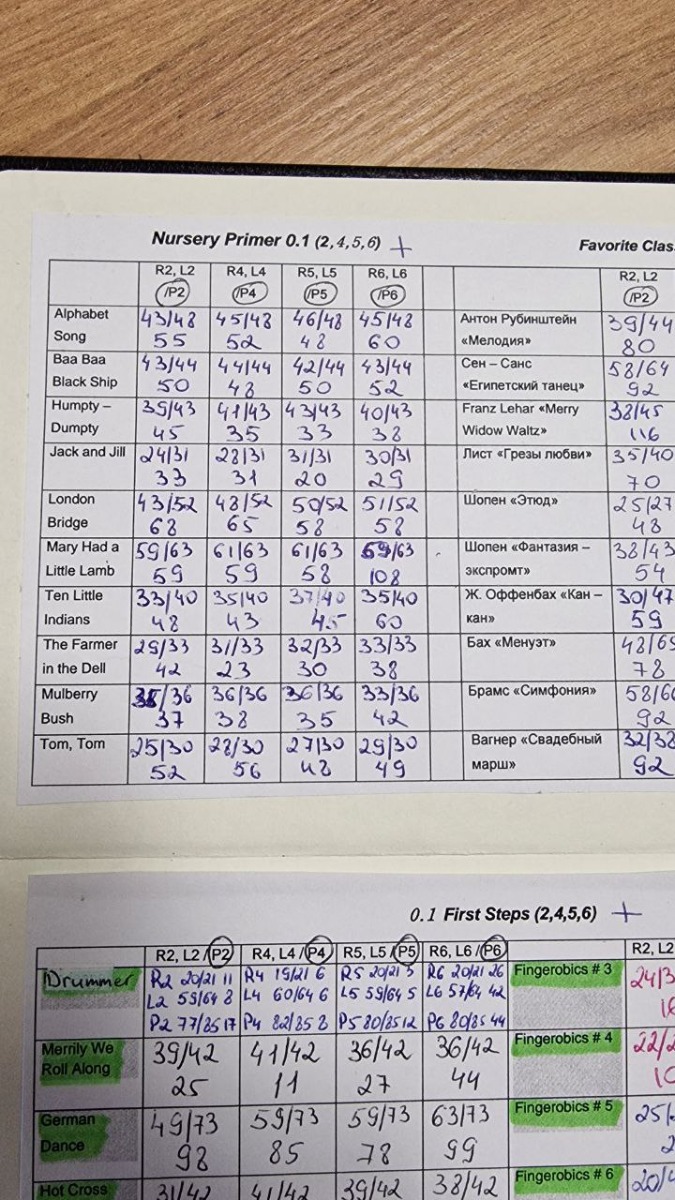 Nursery Primer 0.1 (2,4,5,6) +
Favorite Clas
R2, L2 R4, L4 R5, L5 R6, L6 R2, L2
/P2 /P4 /P5 /P6 /P2
Alphabet 43/48 45/48 46/48 45/48 Антон Рубинштейн 39/44
Song 55 52 48 60 «Мелодия» 80
Baa Baa 43/44 44/44 42/44 43/44 Сен – Санс 58/64
Black Ship 50 48 50 52 «Египетский танец» 92
Humpty – 39/43 41/43 43/43 40/43 Franz Lehar «Merry 38/45
Dumpty 45 35 33 38 Widow Waltz» 116
Jack and Jill 24/31 28/31 31/31 30/31 Лист «Грезы любви» 35/40
33 31 20 29 70
London 43/52 48/52 50/52 51/52 Шопен «Этюд» 25/27
Bridge 68 65 58 58 48
Mary Had a 59/63 61/63 61/63 59/63 Шопен «Фантазия – 38/43
Little Lamb 59 59 58 108 экспромт» 54
Ten Little 33/40 35/40 37/40 35/40 Ж. Оффенбах «Кан – 30/47
Indians 48 43 45 60 кан» 59
The Farmer 29/33 31/33 32/33 33/33 Бах «Менуэт» 48/65
in the Dell 42 23 30 38 78
Mulberry 35/36 36/36 36/36 33/36 Брамс «Симфония» 58/6
Bush 37 38 35 42 92
Tom, Tom 25/30 28/30 27/30 29/30 Вагнер «Свадебный 32/38
52 56 48 49 марш» 92
0.1 First Steps (2,4,5,6) +
R2, L2 /P2 R4, L4 /P4 R5, L5 /P5 R6, L6 /P6 R2, L2
Drummer R2 20/21 11 R4 19/21 6 R5 20/21 5 R6 20/21 26 Fingerobics # 3 24/3
L2 59/64 8 L4 60/64 6 L5 59/64 5 L6 57/64 42
P2 77/85 17 P4 82/85 8 P5 80/85 12 P6 80/85 44
Merrily We 39/42 41/42 36/42 36/42 Fingerobics # 4 22/2
Roll Along 25 11 27 44 10
German 49/73 59/73 59/73 63/73 Fingerobics # 5 25/
Dance 98 85 78 99 2
Hot Cross 31/42 41/42 39/42 38/42 Fingerobics # 6 20/